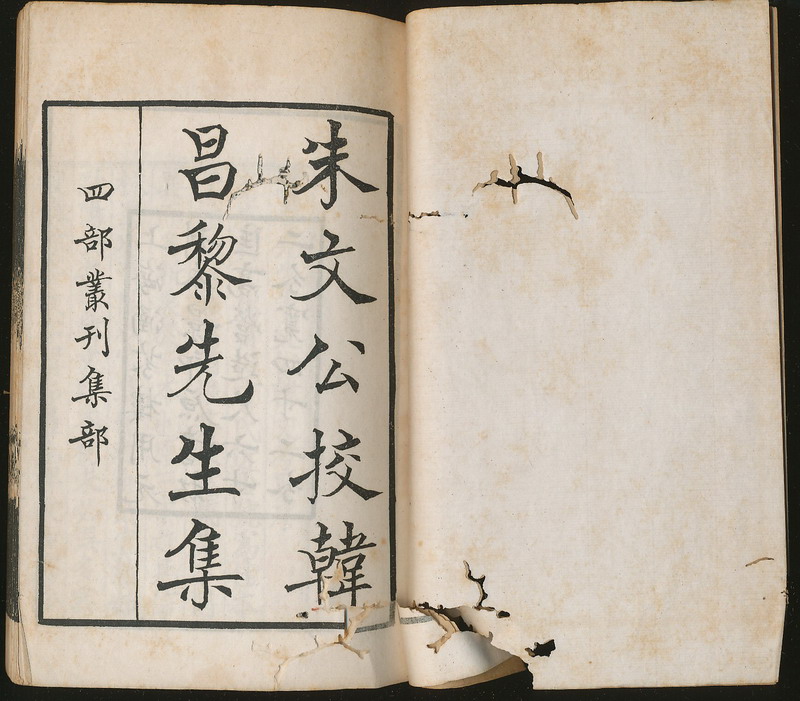 朱文公挍韓
昌黎先生集
四部叢刊集部